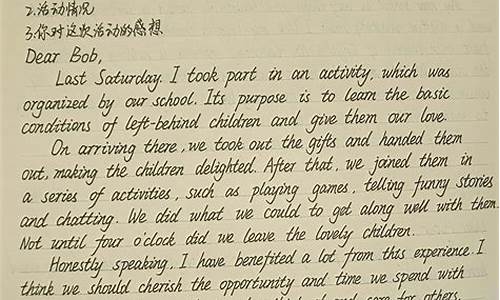 2.活动情况
3.你对这次活动的感想
Dear Bob,
Last Saturday. I took part in an activity, which was
organized by our school. Its purpose is to learn the basic
conditions of left-behind children and give them our love.
On arriving there, we took out the gifts and handed them
out, making the children delighted. After that, we joined them in
a series of activities, such as playing games, telling funny stories
and chatting. We did what we could to get along well with them.
Not until four o'clock did we leave the lovely children.
Honestly speaking, I have benefited a lot from this experience. I
think we should cherish the opportunity and time we spend with
and care for others.